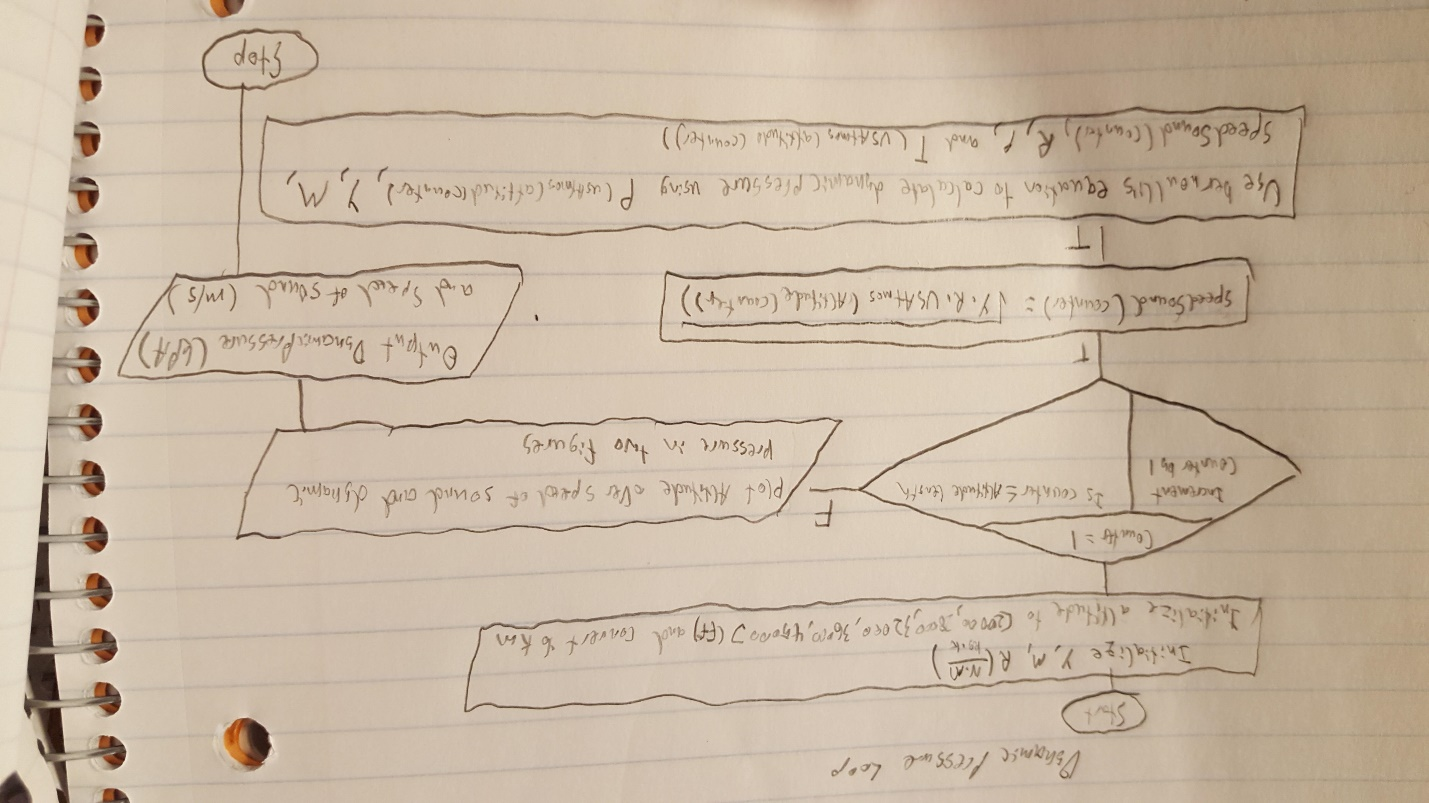 Dynamic Pressure Loop
Start
Initialize γ, M, R (N·M/kg·K)
Initialize altitude to [20000, 32000, 36000, 45000] (ft) and convert to km
Counter = 1
Increment
Counter by 1
Is counter ≤ Altitude length
T
F
SpeedSound (counter) = √γ·R·USAtmos (Altitude (counter))
T
Use bernoullis equation to calculate dynamic pressure using P (usAtmos (altitud (counter)), γ, M,
SpeedSound (counter), R, and T (USAtmos (altitudo (counter))
Plot Altitude over speed of sound and dynamic
pressure in two figures
Output DynamicPressure (kPA)
and speed of sound (m/s)
Stop